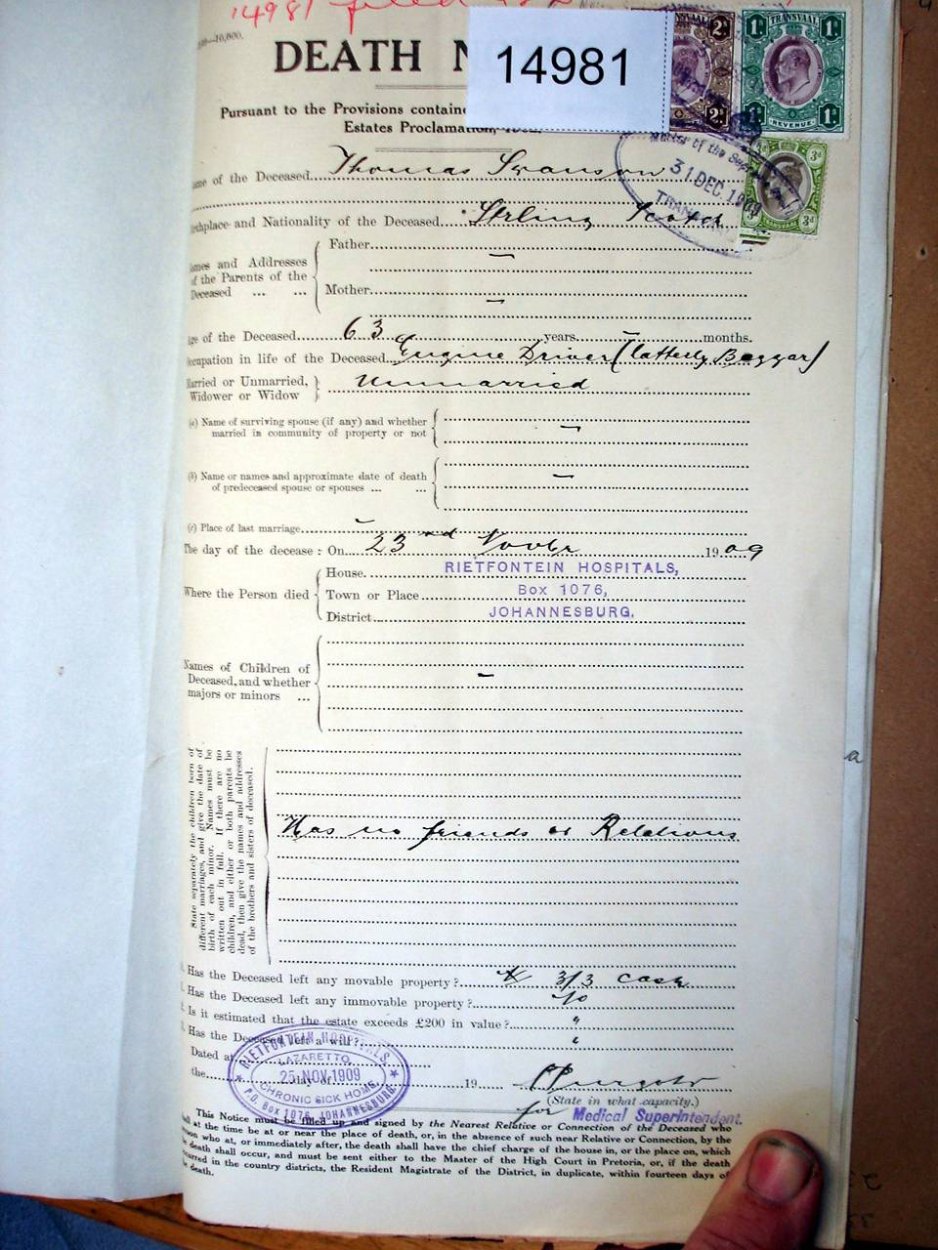 14981 filed
DEATH N
14981
TRANSVAAL
2/-
TRANSVAAL
1/-
REVENUE
Pursuant to the Provisions containe
Estates Proclamation,
31 DEC. 1909
3d
ame of the Deceased Thomas Swanson
rthplace and Nationality of the Deceased Stirling Scotch
ames and Addresses of the Parents of the Deceased ... ...
Father —
Mother —
ge of the Deceased 63 years — months.
ccupation in life of the Deceased Engine Driver (latterly Beggar)
Married or Unmarried, Widower or Widow } Unmarried
(a) Name of surviving spouse (if any) and whether married in community of property or not —
(b) Name or names and approximate date of death of predeceased spouse or spouses ... ... —
(c) Place of last marriage —
The day of the decease : On 23nd Novbr 1909
Where the Person died
House. RIETFONTEIN HOSPITALS,
Town or Place Box 1076,
District JOHANNESBURG.
Names of Children of Deceased, and whether majors or minors ... —
State separately the children born of
different marriages, and give the date of
birth of each minor. Names must be
written out in full. If there are no
children, and either or both parents be
dead, then give the names and addresses
of the brothers and sisters of deceased.
Has no friends or Relations
Has the Deceased left any movable property? 3/3 Cash
Has the Deceased left any immovable property? No
Is it estimated that the estate exceeds £200 in value? "
Has the Deceased left a will? "
Dated at
the day of 19
RIETFONTEIN HOSPITALS
LAZARETTO
25 NOV 1909
CHRONIC SICK HOME
P.O. Box 1076 JOHANNESBURG
(State in what capacity.)
for Medical Superintendent.
This Notice must be filled up and signed by the Nearest Relative or Connection of the Deceased who
all at the time be at or near the place of death, or, in the absence of such near Relative or Connection, by the
on who at, or immediately after, the death shall have the chief charge of the house in, or the place on, which
death shall occur, and must be sent either to the Master of the High Court in Pretoria, or, if the death
urred in the country districts, the Resident Magistrate of the District, in duplicate, within fourteen days of
death.